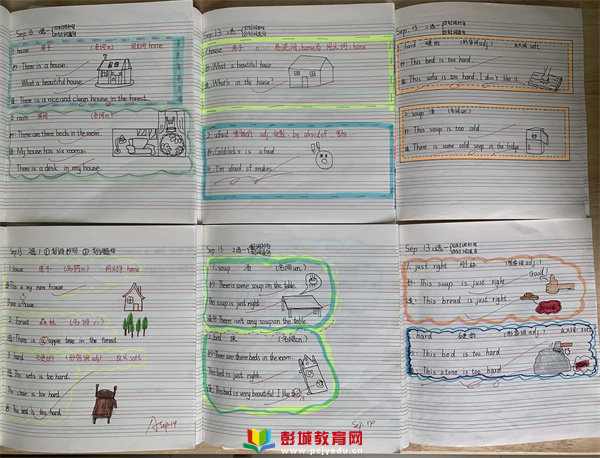 Sep.13
1. house 房子 (名词 n) 同义词 home
There is a house.
What a beautiful house.
There is a nice and clean house in the forest.
2. room 房间 (名词 n)
There are three beds in the room.
My house has six rooms.
There is a desk in my house.
Sep.13
1. house 房子 n home
What a beautiful house
What's in the house?
2. afraid adj be afraid of
Goldilocks is afraid.
I'm afraid of snakes.
Sep.13
1. hard 硬的 (形容词 adj.) 反义词 soft
This bed is too hard.
This sofa is too hard, I don't like it.
2. soup 汤 (名词 un.)
This soup is too cold.
There is some cold soup in the fridge.
Sep.13
1. house 房子 (名词 n) 同义词 home
This is my new house.
There is a house.
2. Forest 森林 (名词 n)
There is apple tree in the forest.
3. hard 硬的 (形容词 adj) 反义 soft
This sofa is too hard.
This chair is too hard.
This bed is too hard.
Sep.14
Sep.13
1. soup 汤 (名词 un.)
There is some soup on the table.
The soup is just right.
There isn't any soup on the table
2. bed 床 (名词 cn)
There are three beds in the room.
This bed is just right.
This bed is very beautiful. I like it.
Sep. 14
Sep.13
1. just right 刚好 (形容词 adj.)
This soup is just right
Good!
This bread is just right
2. hard 硬的 (形容词 adj.) 反义词 soft
This bed is too hard
This stone is too hard
彭城教育网
www.pcjyedu.cn